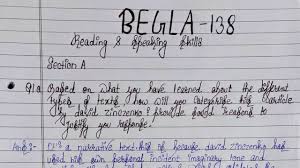 BEGLA-138
Reading & Speaking Skills
Section A
Q1a Based on what you have learned about the different
types of texts, how will you categorise this article
by david zinczenko? Provide reasons to
justify you response.
Ans:- It's a narrative text. of because david zinczenko had
used his own personal incident imaginary tone and